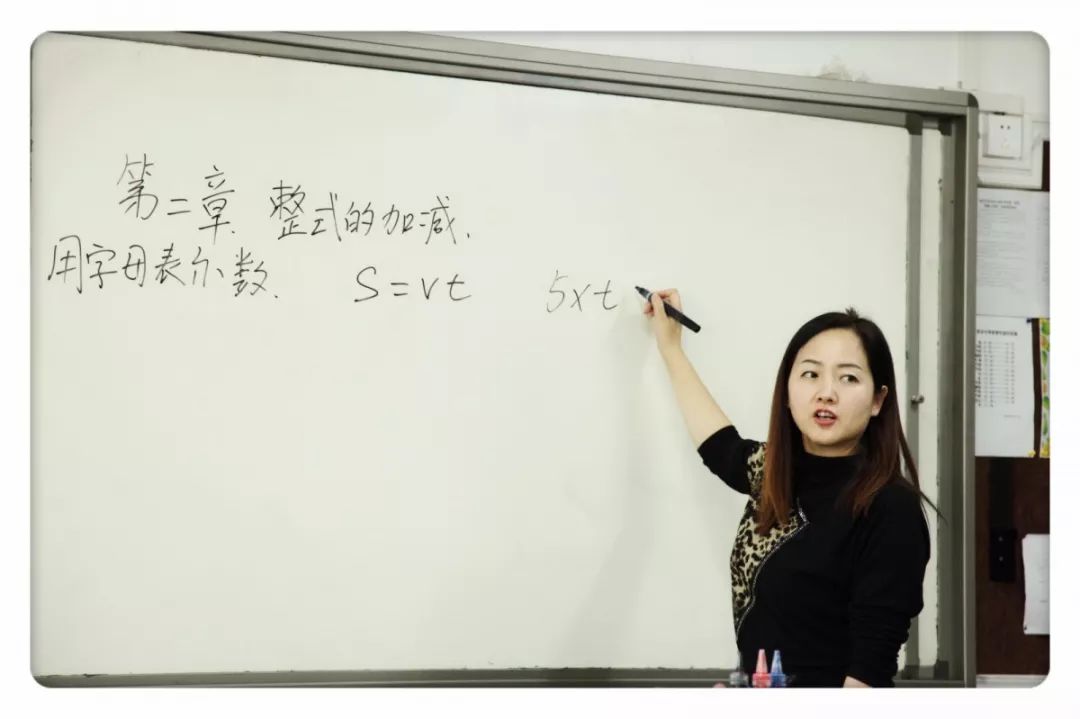 第二章. 整式的加减.
用字母表示数. S=vt 5xt